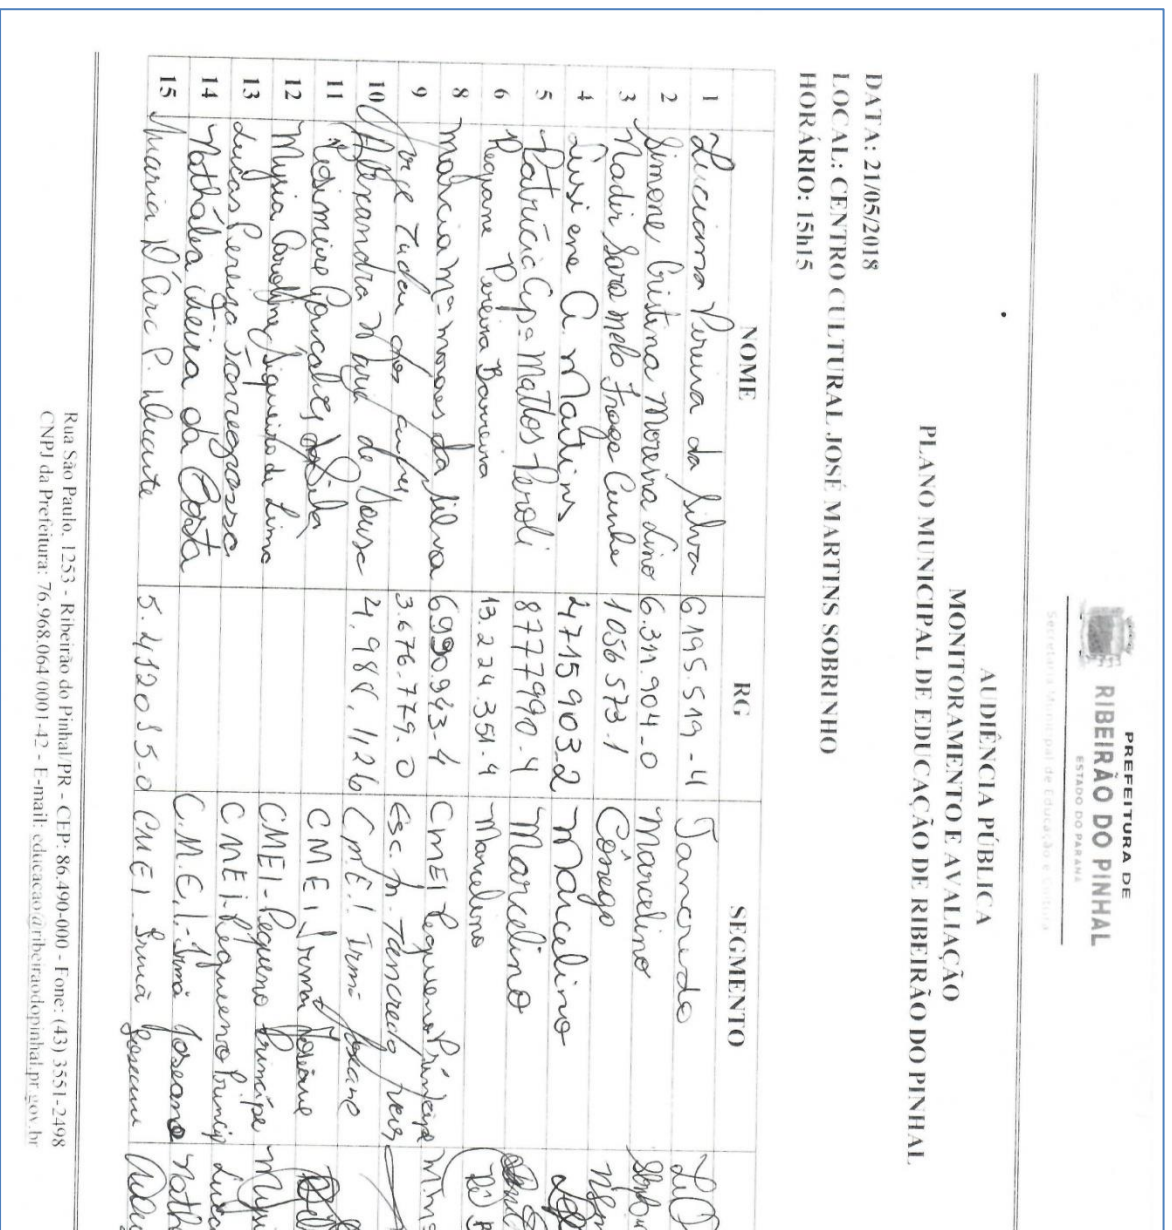 PREFEITURA DE
RIBEIRÃO DO PINHAL
ESTADO DO PARANÁ
Secretaria Municipal de Educação e Cultura
AUDIÊNCIA PÚBLICA
MONITORAMENTO E AVALIAÇÃO
PLANO MUNICIPAL DE EDUCAÇÃO DE RIBEIRÃO DO PINHAL
DATA: 21/05/2018
LOCAL: CENTRO CULTURAL JOSÉ MARTINS SOBRINHO
HORÁRIO: 15h15
NOME RG SEGMENTO
1 Luciana Pereira da Silva 6195.519-4 Tancredo
2 Simone Cristina Moreira Lino 6.311.904-0 Marcelino
3 Nadir Melo Cunha 1056573.1 Córrego
4 Lusiene A. Martins 4715903-2 Marcelino
5 Patrícia Apª Mattos Peroli 8777990-4 Marcelino
6 Regiane Pereira Barreira 13.224.351-4 Marcelino
8 Marcia Mª Moraes da Silva 6990.943-4 CMEI Pequeno Príncipe
9 3.676.779-0 Esc. M. Tancredo
10 de Souza CMEI Irmã
11 Gonçalves da Silva CMEI Irmã
12 Siqueira de Lima CMEI-Pequeno Príncipe
13 Lucas Pereira CMEI Pequeno Princip
14 Nathália Vieira da Costa C.M.E.I.-Irmã Joseane
15 Maria D'Arc P. 5.412085-0 CMEI Irmã
Rua São Paulo, 1253 - Ribeirão do Pinhal/PR - CEP: 86.490-000 - Fone: (43) 3551-2498
CNPJ da Prefeitura: 76.968.064/0001-42 - E-mail: educacao@ribeiraodopinhal.pr.gov.br